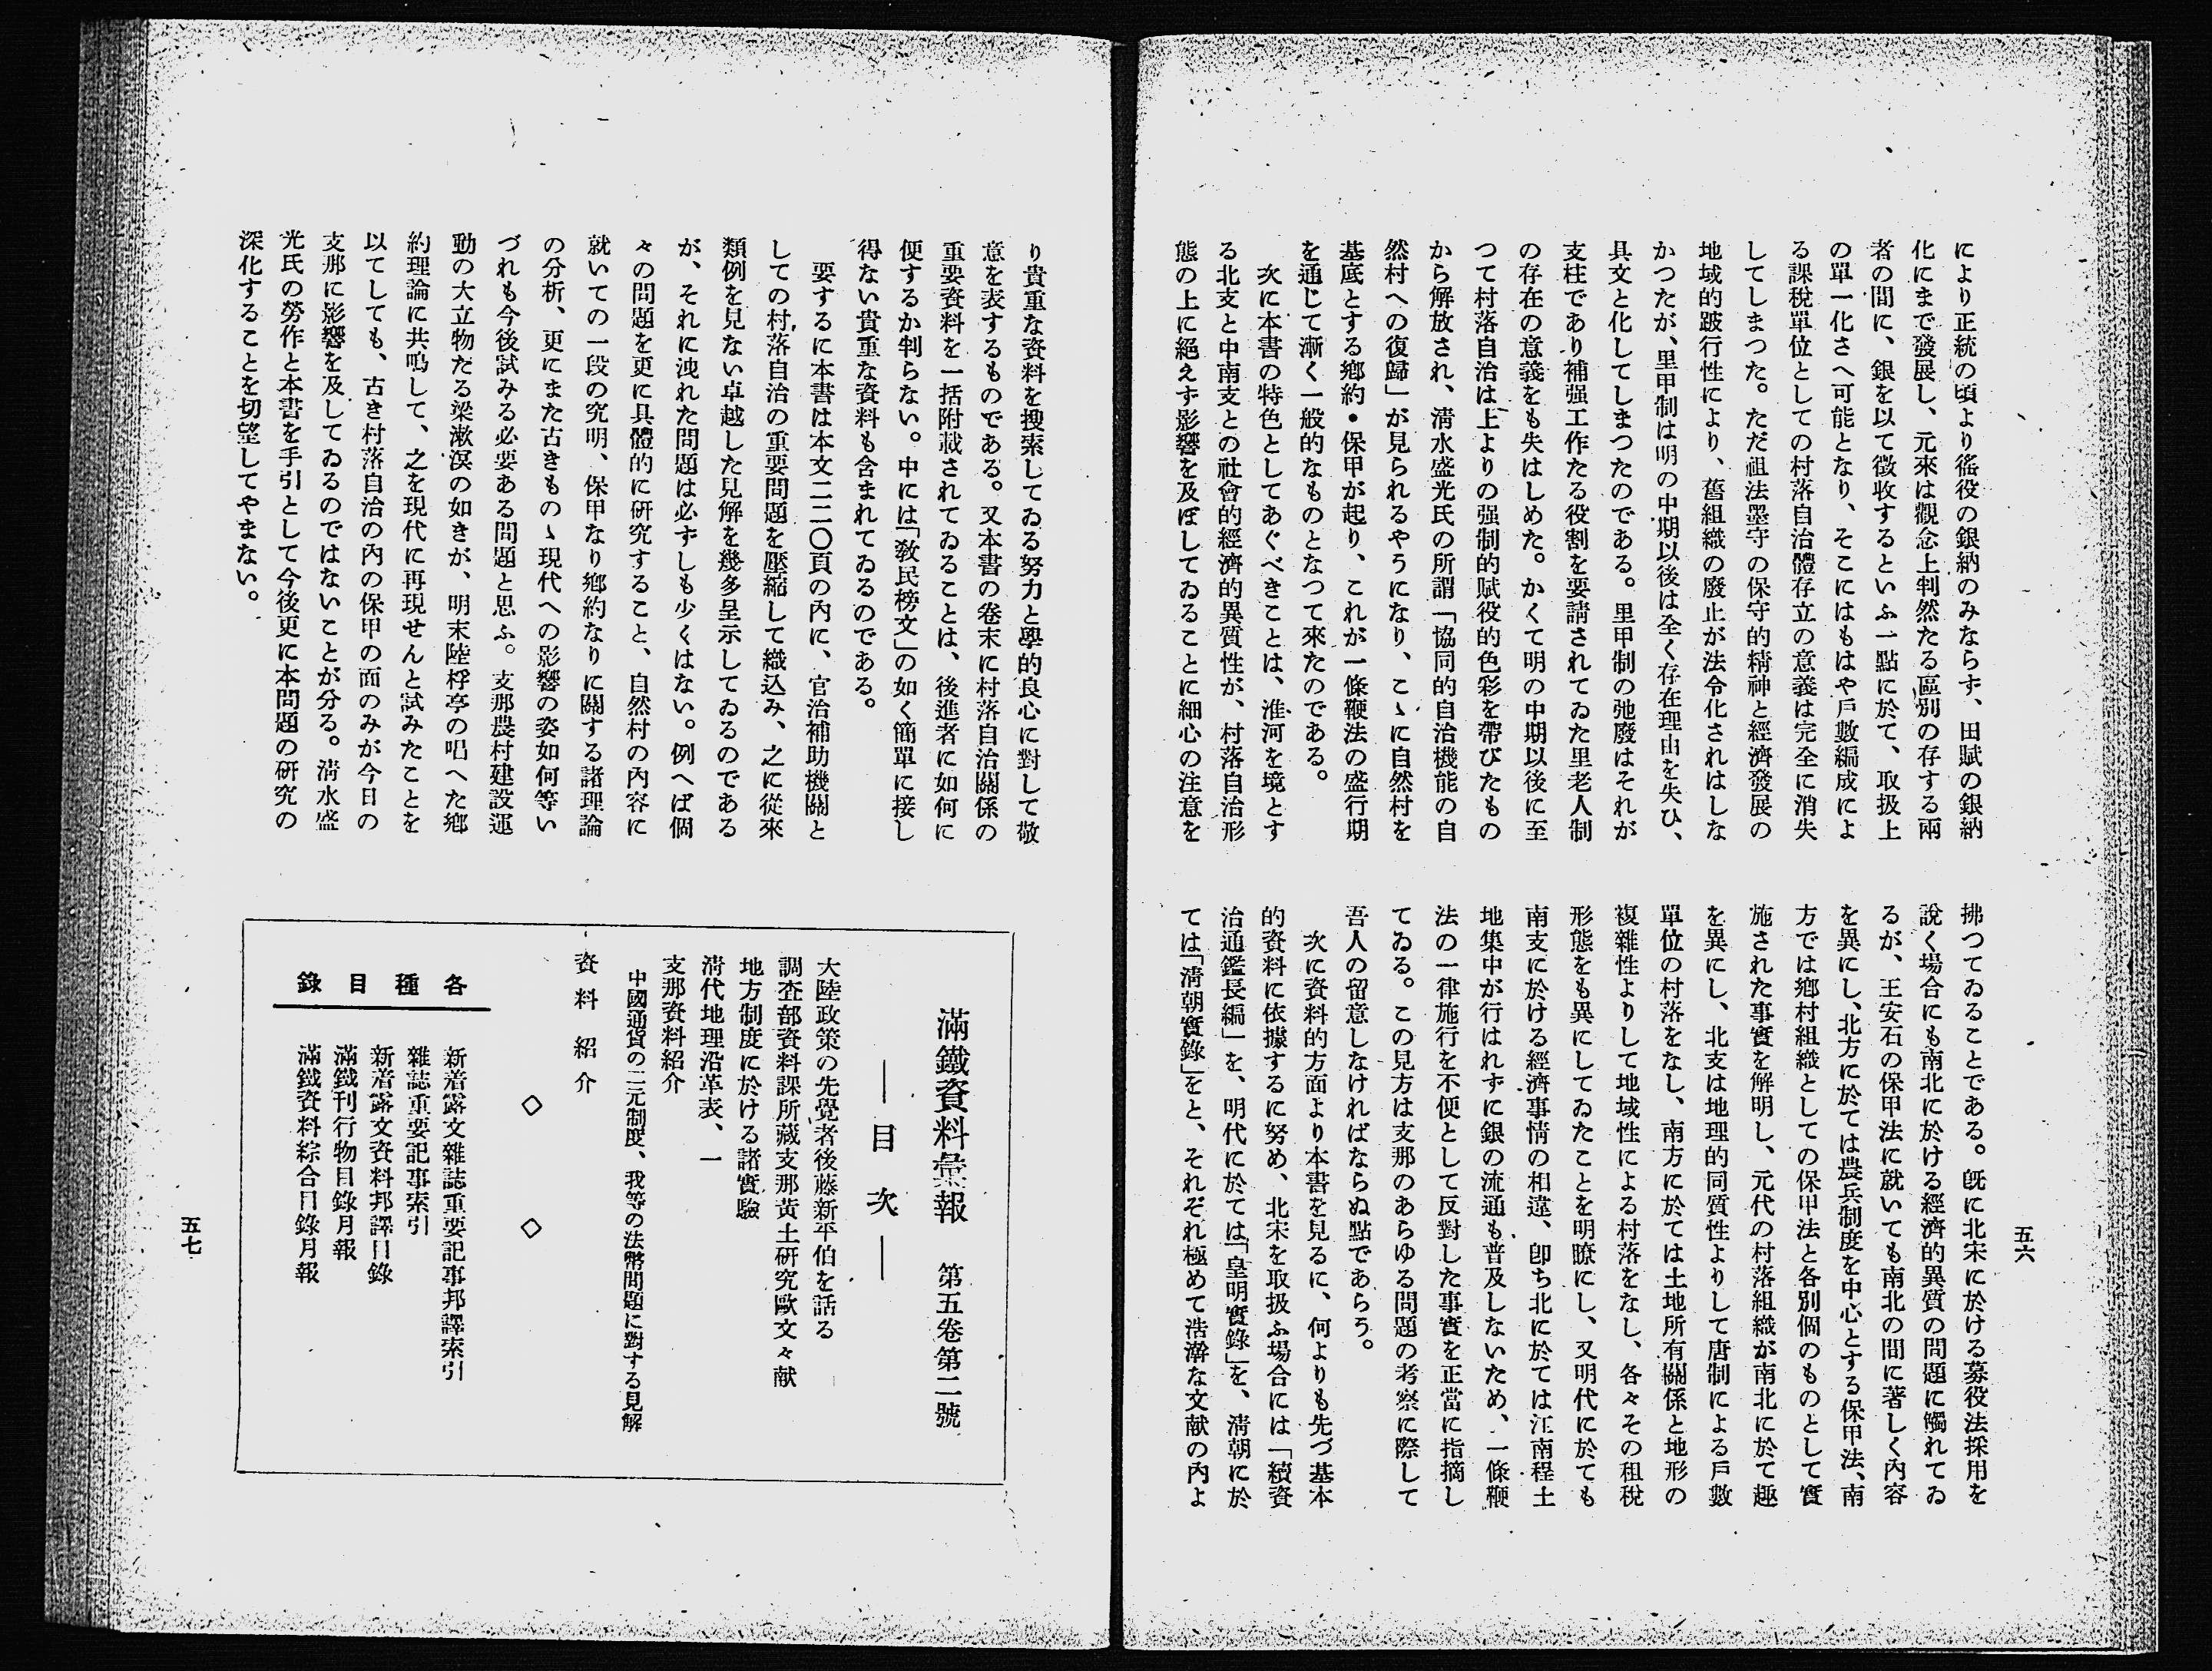 により正統の頃より徭役の銀納のみならず、田賦の銀納
化にまで發展し、元來は觀念上判然たる區別の存する兩
者の間に、銀を以て徵收するといふ一點に於て、取扱上
の單一化さへ可能となり、そこにはもはや戶數編成によ
る課稅單位としての村落自治體存立の意義は完全に消失
してしまつた。ただ祖法墨守の保守的精神と經濟發展の
地域的跛行性により、舊組織の廢止が法令化されはしな
かつたが、里甲制は明の中期以後は全く存在理由を失ひ、
具文と化してしまつたのである。里甲制の弛廢はそれが
支柱であり補强工作たる役割を要請されてゐた里老人制
の存在の意義をも失はしめた。かくて明の中期以後に至
つて村落自治は上よりの强制的賦役的色彩を帶びたもの
から解放され、淸水盛光氏の所謂「協同的自治機能の自
然村への復歸」が見られるやうになり、こゝに自然村を
基底とする鄕約・保甲が起り、これが一條鞭法の盛行期
を通じて漸く一般的なものとなつて來たのである。
次に本書の特色としてあぐべきことは、淮河を境とす
る北支と中南支との社會的經濟的異質性が、村落自治形
態の上に絕えず影響を及ぼしてゐることに細心の注意を
拂つてゐることである。旣に北宋に於ける募役法採用を
說く場合にも南北に於ける經濟的異質の問題に觸れてゐ
るが、王安石の保甲法に就いても南北の間に著しく內容
を異にし、北方に於ては農兵制度を中心とする保甲法、南
方では鄕村組織としての保甲法と各別個のものとして實
施された事實を解明し、元代の村落組織が南北に於て趣
を異にし、北支は地理的同質性よりして唐制による戶數
單位の村落をなし、南方に於ては土地所有關係と地形の
複雜性よりして地域性による村落をなし、各々その租稅
形態をも異にしてゐたことを明瞭にし、又明代に於ても
南支に於ける經濟事情の相違、卽ち北に於ては江南程土
地集中が行はれずに銀の流通も普及しないため、一條鞭
法の一律施行を不便として反對した事實を正當に指摘し
てゐる。この見方は支那のあらゆる問題の考察に際して
吾人の留意しなければならぬ點であらう。
次に資料的方面より本書を見るに、何よりも先づ基本
的資料に依據するに努め、北宋を取扱ふ場合には「續資
治通鑑長編」を、明代に於ては「皇明實錄」を、淸朝に於
ては「淸朝實錄」をと、それぞれ極めて浩瀚な文献の內よ
五六
り貴重な資料を搜索してゐる努力と學的良心に對して敬
意を表するものである。又本書の卷末に村落自治關係の
重要資料を一括附載されてゐることは、後進者に如何に
便するか判らない。中には「敎民榜文」の如く簡單に接し
得ない貴重な資料も含まれてゐるのである。
要するに本書は本文二二〇頁の內に、官治補助機關と
しての村落自治の重要問題を壓縮して織込み、之に從來
類例を見ない卓越した見解を幾多呈示してゐるのである
が、それに洩れた問題は必ずしも少くはない。例へば個
々の問題を更に具體的に硏究すること、自然村の內容に
就いての一段の究明、保甲なり鄕約なりに關する諸理論
の分析、更にまた古きものゝ現代への影響の姿如何等い
づれも今後試みる必要ある問題と思ふ。支那農村建設運
動の大立物たる梁漱溟の如きが、明末陸桴亭の唱へた鄕
約理論に共鳴して、之を現代に再現せんと試みたことを
以てしても、古き村落自治の內の保甲の面のみが今日の
支那に影響を及してゐるのではないことが分る。淸水盛
光氏の勞作と本書を手引として今後更に本問題の硏究の
深化することを切望してやまない。
滿鐵資料彙報 第五卷第二號
―目次―
大陸政策の先覺者後藤新平伯を話る
調查部資料課所藏支那黃土硏究歐文々献
地方制度に於ける諸實驗
淸代地理沿革表、一
支那資料紹介
中國通貨の二元制度、我等の法幣問題に對する見解
資料紹介
◇ ◇
各種目錄
新着露文雜誌重要記事邦譯索引
雜誌重要記事索引
新着露文資料邦譯目錄
滿鐵刊行物目錄月報
滿鐵資料綜合目錄月報
五七